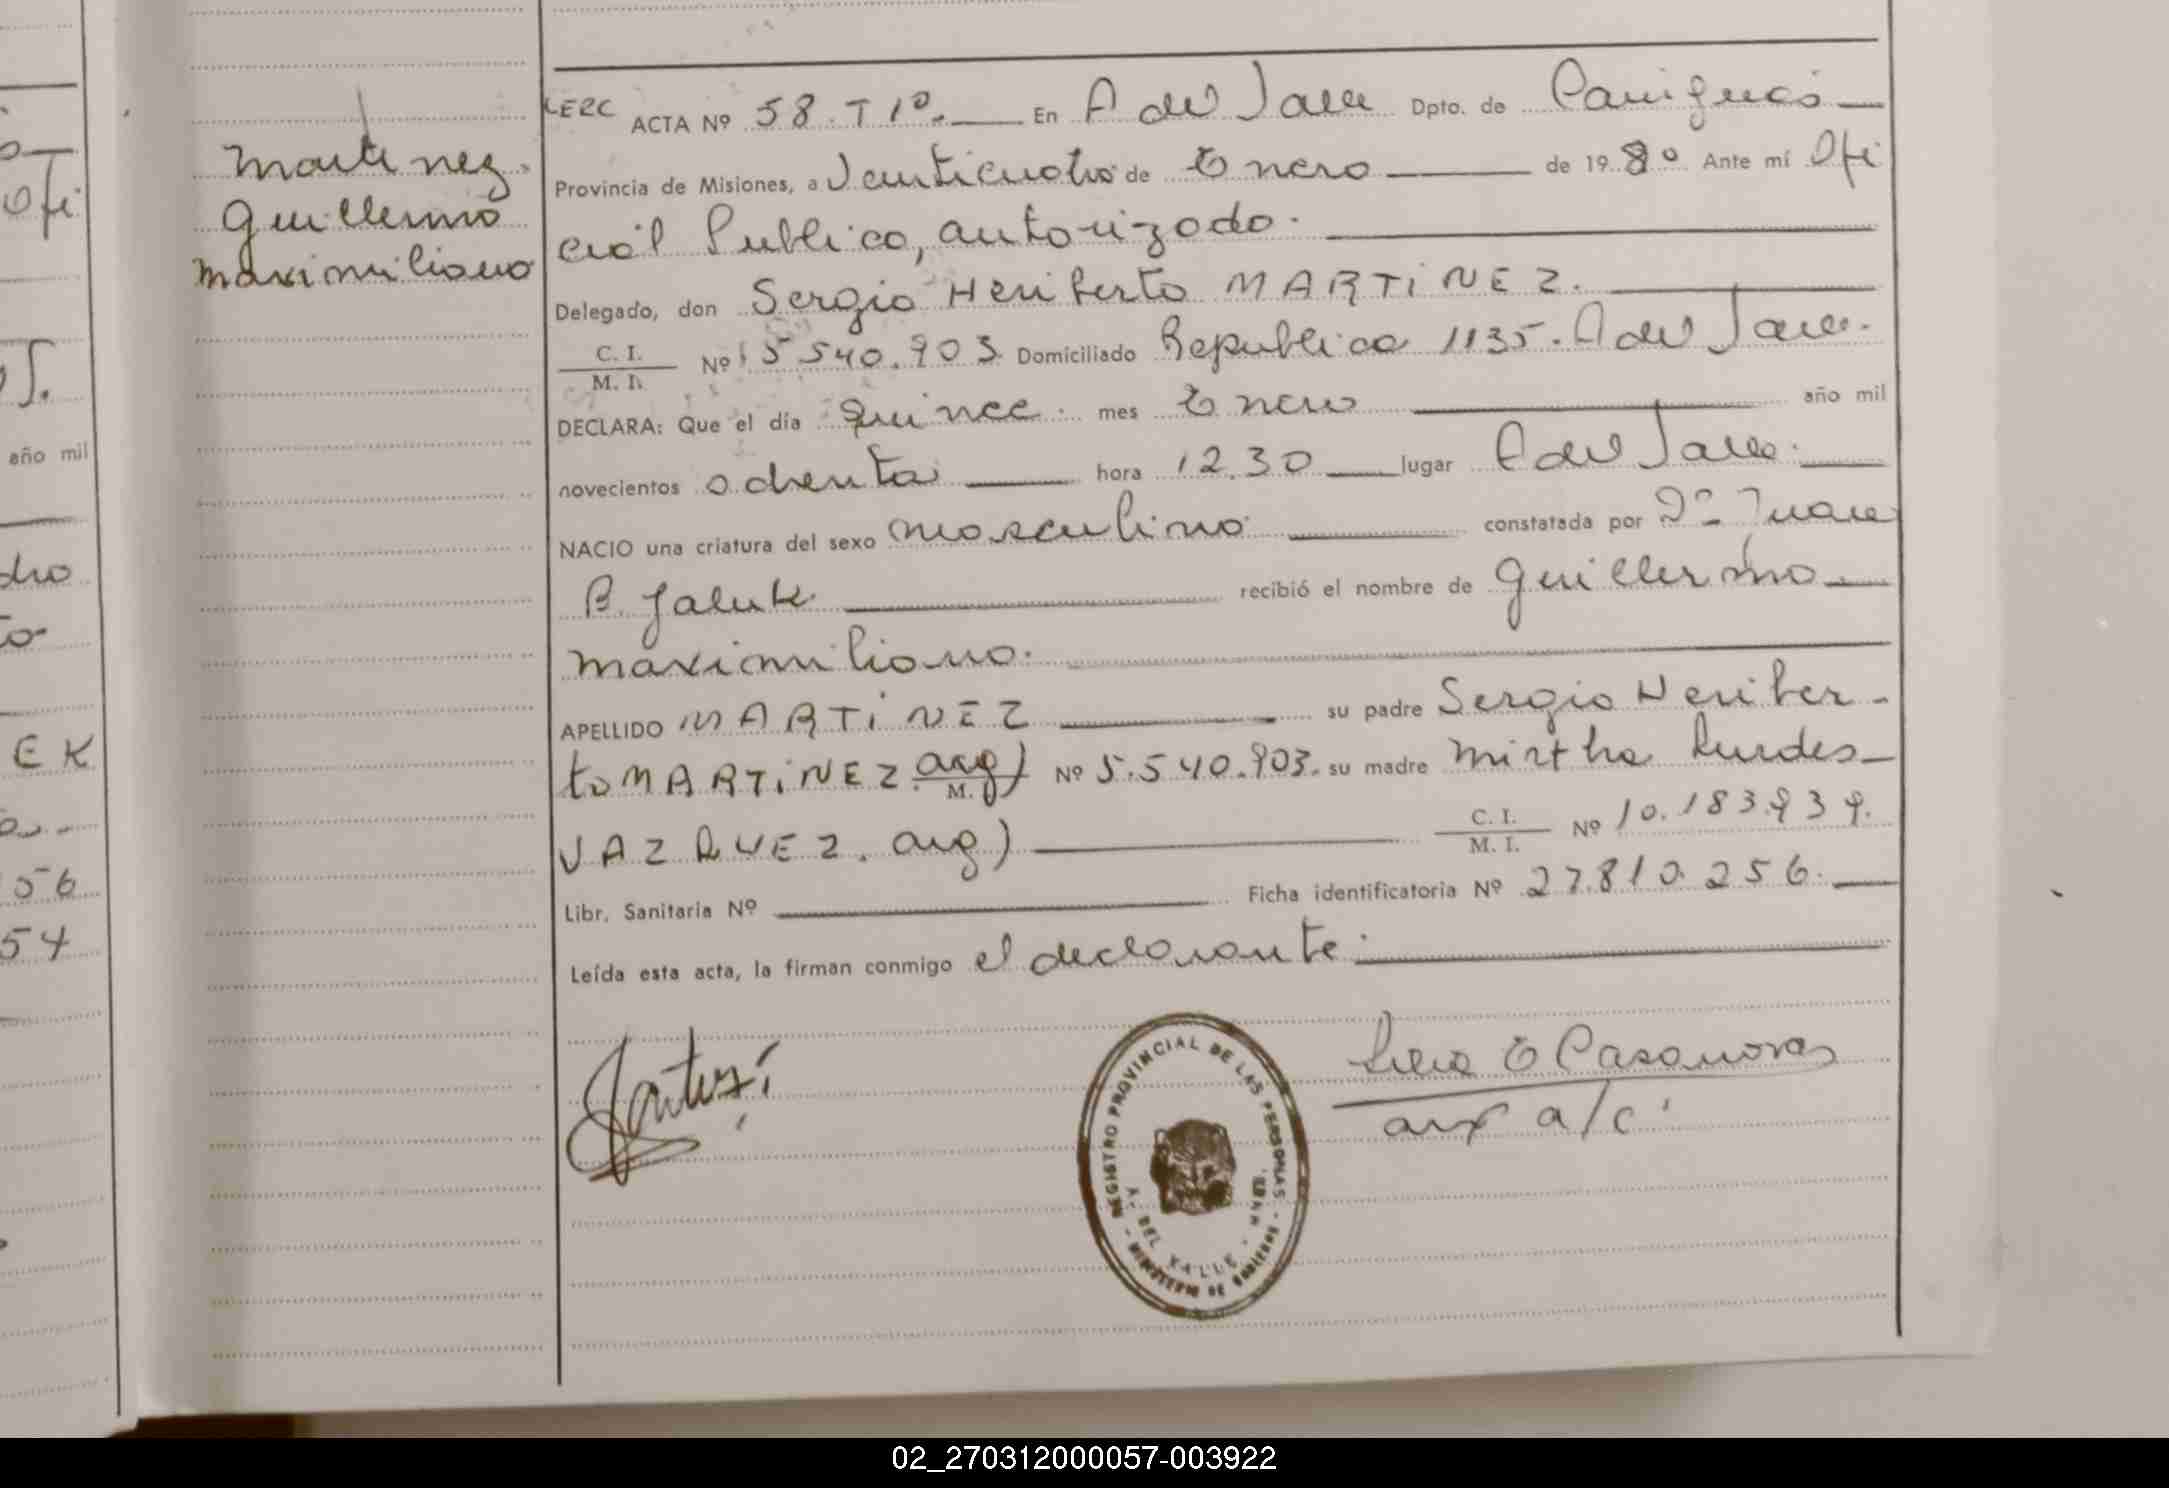 Martinez
Guillermo
Maximiliano
LERC ACTA Nº 58. T 1º. En A del Valle Dpto. de Cainguas
Provincia de Misiones, a Veinticuatro de Enero de 19 80 Ante mí Ofi
cial Publico, autorizado.
Delegado, don Sergio Heriberto MARTiNEZ.
C. I.
M. I. Nº 5 540.903 Domiciliado Republica 1135. A del Valle.
DECLARA: Que el día quince mes Enero año mil
novecientos ochenta hora 12.30 lugar A del Valle.
NACIO una criatura del sexo masculino constatada por Dº Juan
B. recibió el nombre de Guillermo
Maximiliano.
APELLIDO MARTiNEZ su padre Sergio Heriber-
to MARTiNEZ. arg) M. Nº 5.540.903. su madre Mirtha Lurdes
VAZQUEZ. arg) C. I.
M. I. Nº 10.183.939.
Libr. Sanitaria Nº Ficha identificatoria Nº 27.810.256.
Leída esta acta, la firman conmigo el declarante.
E Casanovas
aux a/c
REGISTRO PROVINCIAL DE LAS PERSONAS
A. DEL VALLE
MINISTERIO DE GOBIERNO
año mil
EK
56
54
02_270312000057-003922